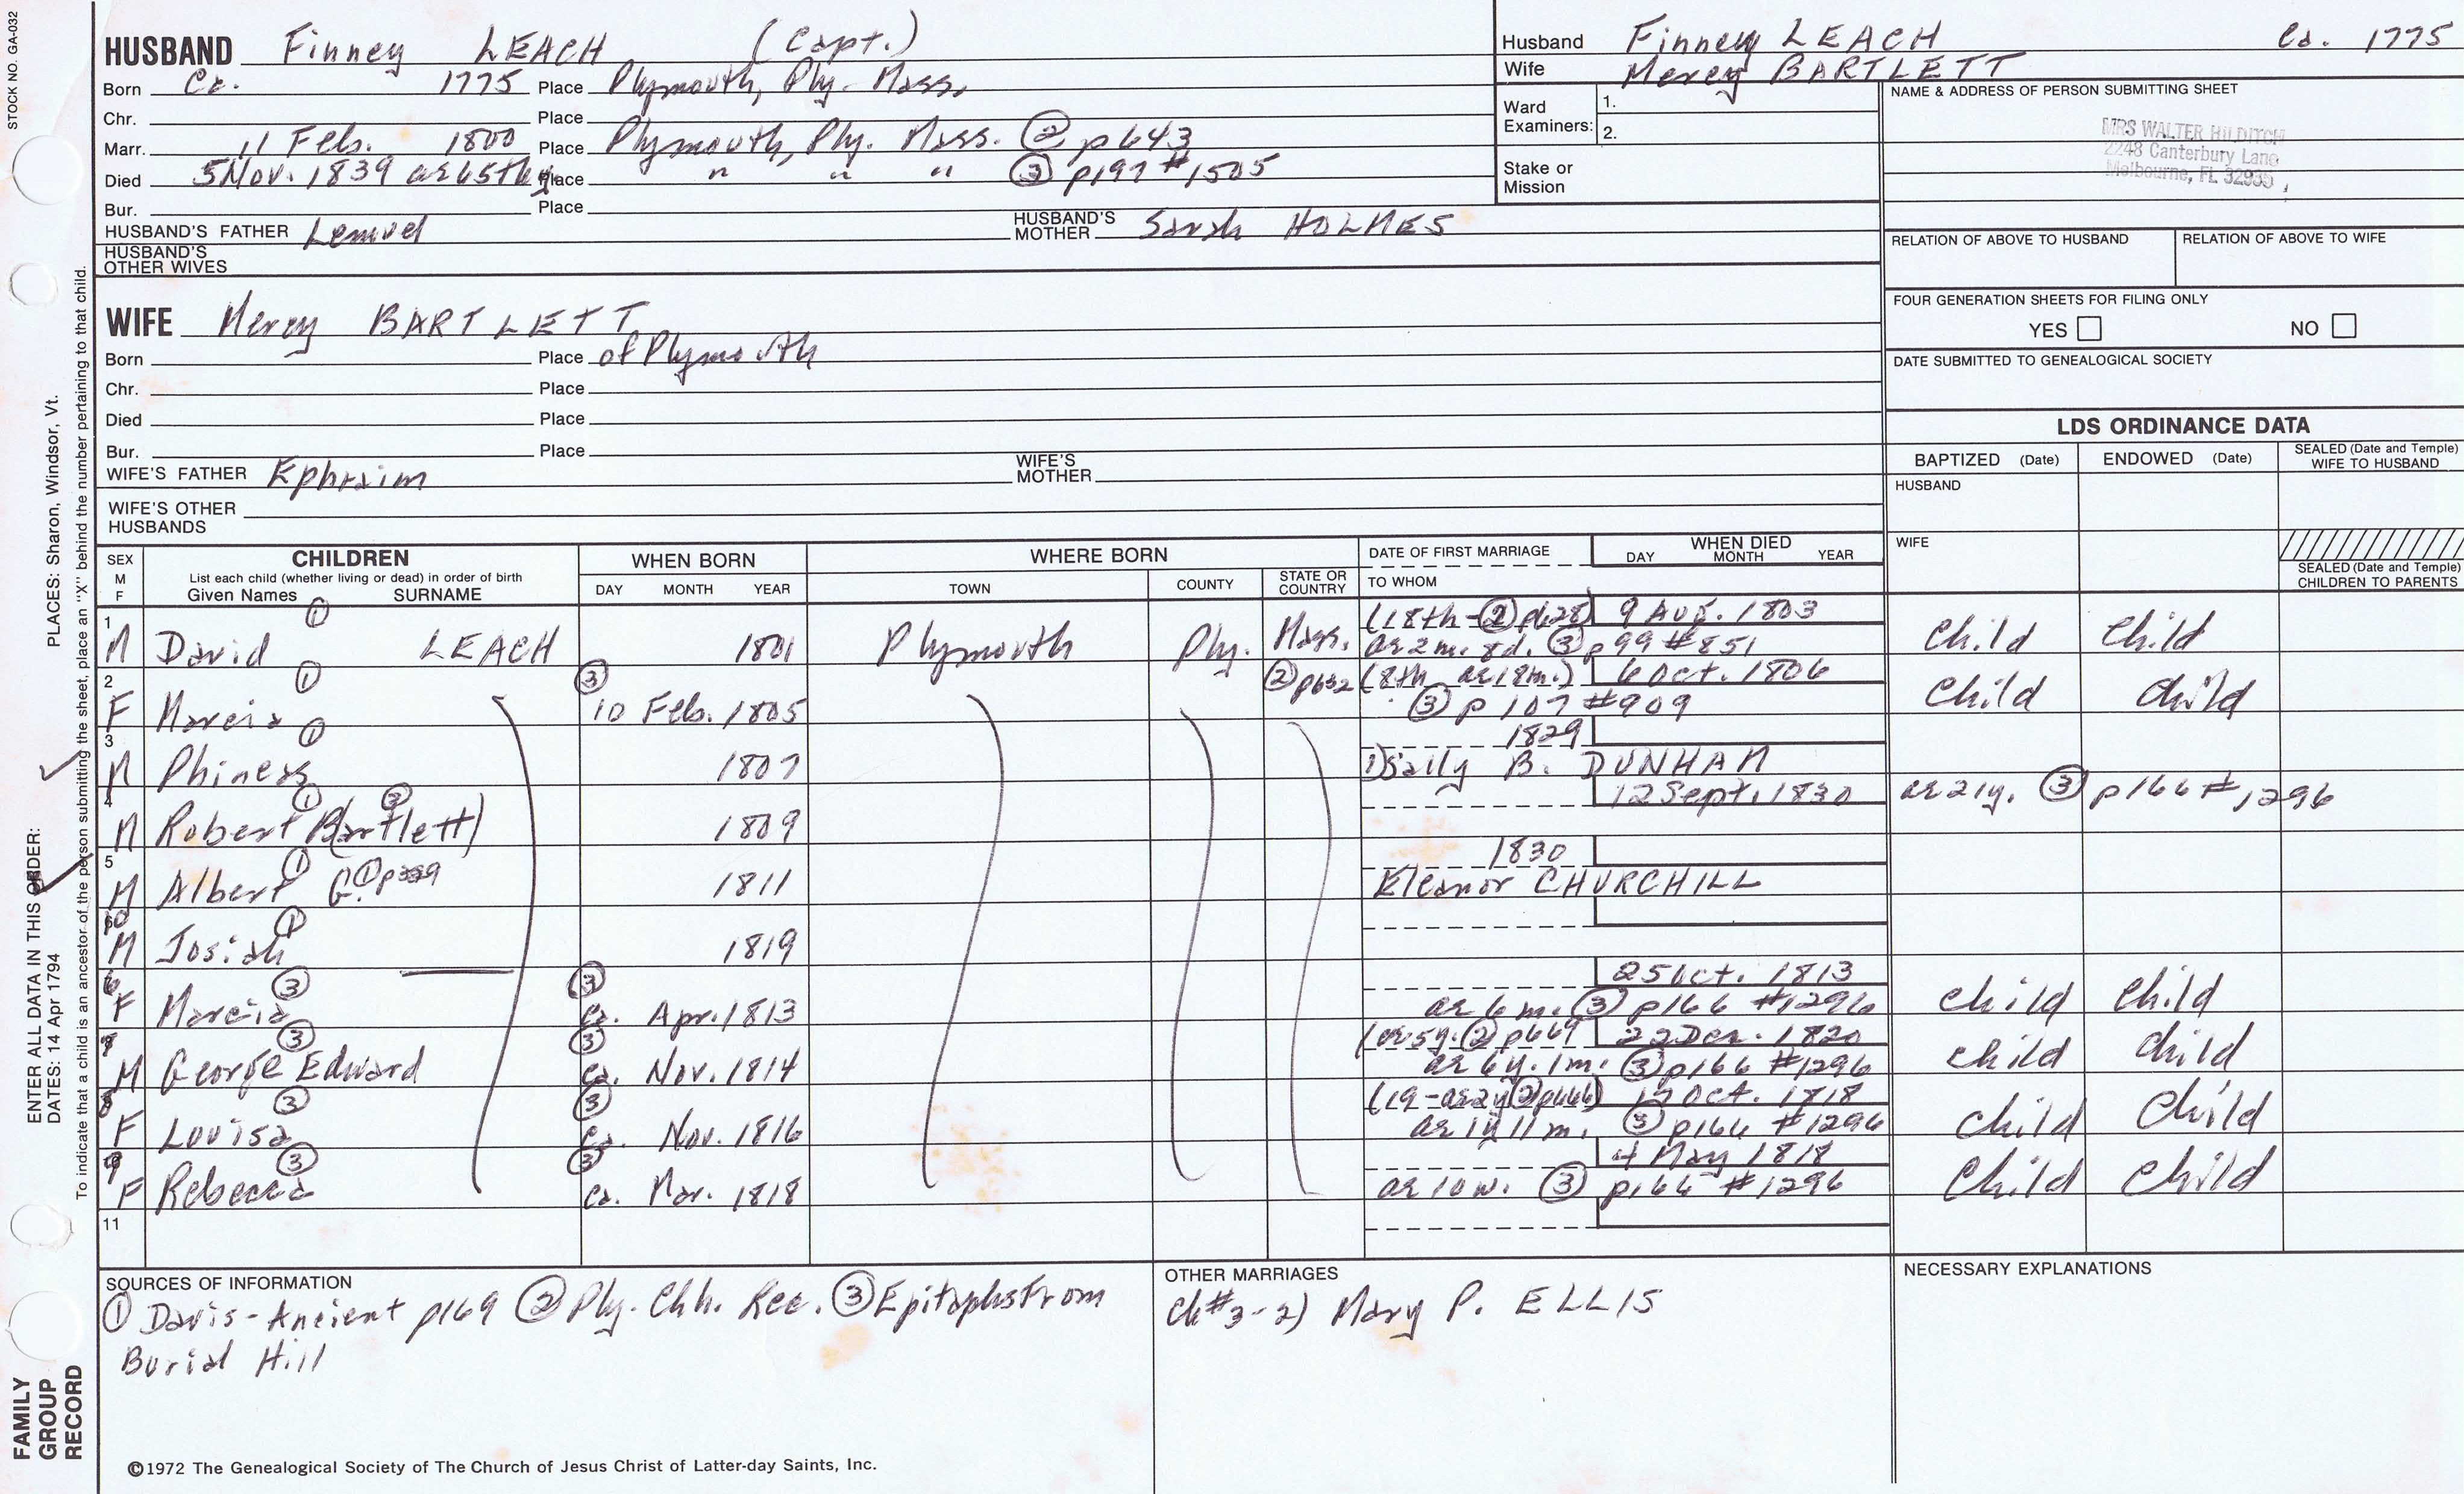 STOCK NO. GA-032
HUSBAND Finney LEACH (Capt.)
Born Ca. 1775 Place Plymouth, Ply. Mass.
Chr. Place
Marr. 11 Feb. 1800 Place Plymouth, Ply. Mass. ② p643
Died 5 Nov. 1839 ae 65th y Place " " " ③ p197 #1505
Bur. Place
HUSBAND'S FATHER Lemuel HUSBAND'S MOTHER Sarah HOLMES
HUSBAND'S OTHER WIVES
Husband Finney LEACH Ca. 1775
Wife Mercy BARTLETT
Ward Examiners: 1.
2.
Stake or Mission
NAME & ADDRESS OF PERSON SUBMITTING SHEET
MRS WALTER HILDITCH
2248 Canterbury Lane
Melbourne, FL 32935
RELATION OF ABOVE TO HUSBAND RELATION OF ABOVE TO WIFE
WIFE Mercy BARTLETT
Born Place of Plymouth
Chr. Place
Died Place
Bur. Place
WIFE'S FATHER Ephraim WIFE'S MOTHER
WIFE'S OTHER HUSBANDS
FOUR GENERATION SHEETS FOR FILING ONLY
YES NO
DATE SUBMITTED TO GENEALOGICAL SOCIETY
LDS ORDINANCE DATA
BAPTIZED (Date) ENDOWED (Date) SEALED (Date and Temple) WIFE TO HUSBAND
HUSBAND
WIFE
SEALED (Date and Temple) CHILDREN TO PARENTS
SEX M F CHILDREN WHEN BORN WHERE BORN DATE OF FIRST MARRIAGE WHEN DIED
List each child (whether living or dead) in order of birth
Given Names SURNAME DAY MONTH YEAR TOWN COUNTY STATE OR COUNTRY TO WHOM DAY MONTH YEAR
1 ① (18th-② p628) 9 Aug. 1803
M David LEACH 1801 Plymouth Ply. Mass. ae 2m. 8d. ③ p99 #851 Child Child
2 ① ③ ② p632 (8th ae 18m.) 6 Oct. 1806
F Marcia 10 Feb. 1805 ③ p107 #909 Child Child
3 ① 1829
M Phineas 1807 1) Sally B. DUNHAM
4 ① ③ 12 Sept. 1830 ae 21y. ③ p166 #1296
M Robert (Bartlett) 1809
5 ① 1830
M Albert G. ① p329 1811 Eleanor CHURCHILL
10 ①
M Josiah 1819
6 ③ ③ 25 Oct. 1813
F Marcia Ca. Apr. 1813 ae 6m. ③ p166 #1296 Child Child
7 ③ ③ (ae 5y. ② p669 22 Dec. 1820
M George Edward Ca. Nov. 1814 ae 6y. 1m. ③ p166 #1296 Child Child
8 ③ ③ (19-ae 2y ② p666) 17 Oct. 1818
F Louisa Ca. Nov. 1816 ae 1y 11m. ③ p166 #1296 Child Child
9 ③ ③ 4 May 1818
F Rebecca Ca. Mar. 1818 ae 10w. ③ p166 #1296 Child Child
11
SOURCES OF INFORMATION
① Davis-Ancient p169 ② Ply. Chh. Rec. ③ Epitaphs From
Burial Hill
OTHER MARRIAGES
Ch #3-2) Mary P. ELLIS
NECESSARY EXPLANATIONS
©1972 The Genealogical Society of The Church of Jesus Christ of Latter-day Saints, Inc.
ENTER ALL DATA IN THIS ORDER: PLACES: Sharon, Windsor, Vt.
DATES: 14 Apr 1794
To indicate that a child is an ancestor of the person submitting the sheet, place an "X" behind the number pertaining to that child.
FAMILY
GROUP
RECORD